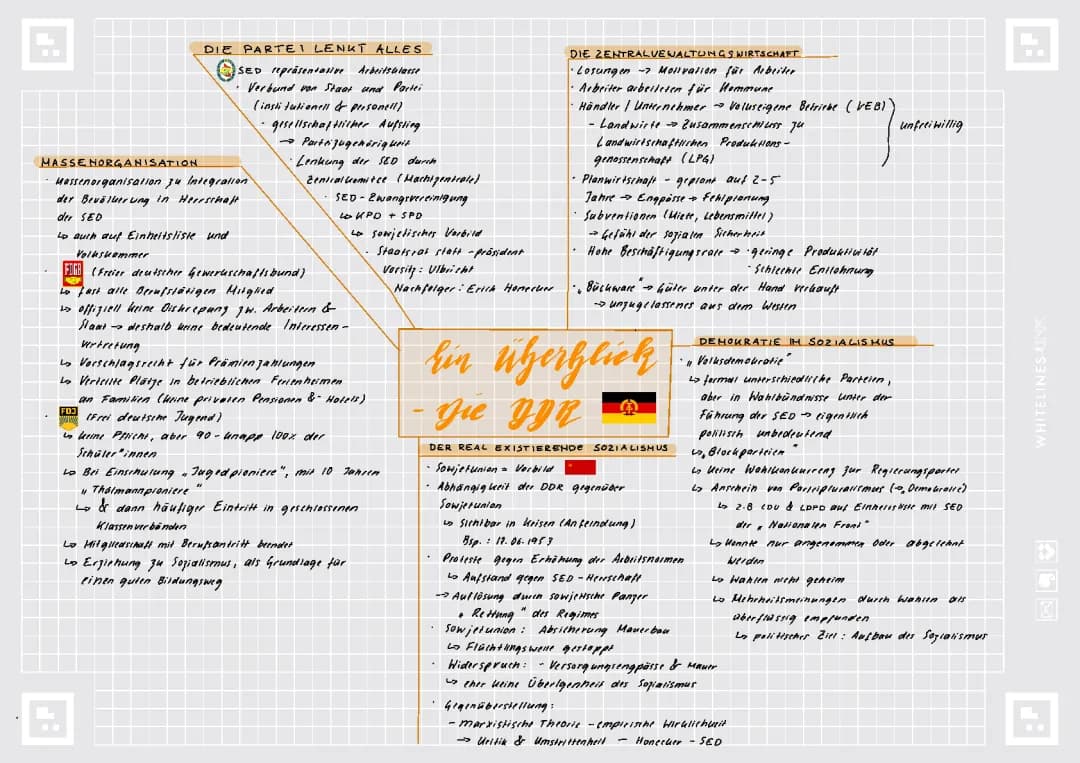 DIE PARTEI LENKT ALLES
SED repräsentative Arbeitsklasse
· Verbund von Staat und Partei
(institutionell & personell)
· gesellschaftlicher Aufstieg
→ Parteizugehörigkeit
· Lenkung der SED durch
Zentralkomitee (Machtzentrale)
· SED-Zwangsvereinigung
↳ KPD + SPD
↳ sowjetisches Vorbild
· Staatsrat statt -präsident
Vorsitz: Ulbricht
Nachfolger: Erich Honecker
DIE ZENTRALVEWALTUNGSWIRTSCHAFT
· Losungen → Motivation für Arbeiter
· Arbeiter arbeiteten für Kommune
· Händler / Unternehmer → Volkseigene Betriebe (VEB)
- Landwirte → Zusammenschluss zu
Landwirtschaftlichen Produktions-
genossenschaft (LPG)
unfreiwillig
· Planwirtschaft - geplant auf 2-5
Jahre → Engpässe → Fehlplanung
· Subventionen (Miete, Lebensmittel)
→ Gefühl der sozialen Sicherheit
· Hohe Beschäftigungsrate → · geringe Produktivität
· Schlechte Entlohnung
· „Bückware" → Güter unter der Hand verkauft
→ unzugelassenes aus dem Westen
MASSENORGANISATION
· Massenorganisation zu Integration
der Bevölkerung in Herrschaft
der SED
↳ auch auf Einheitsliste und
Volkskammer
· FDGB (Freier deutscher Gewerkschaftsbund)
↳ fast alle Berufstätigen Mitglied
↳ offiziell keine Diskrepanz zw. Arbeitern &
Staat → deshalb keine bedeutende Interessen-
vertretung
↳ Vorschlagsrecht für Prämienzahlungen
↳ Verteilte Plätze in betrieblichen Ferienheimen
an Familien (keine privaten Pensionen & -Hotels)
· FDJ (Frei deutsche Jugend)
↳ keine Pflicht, aber 90-knapp 100% der
Schüler*innen
↳ Bei Einschulung „Jugedpioniere", mit 10 Jahren
„Thälmannpioniere"
↳ & dann häufiger Eintritt in geschlossenen
Klassenverbänden
↳ Mitgliedschaft mit Berufsantritt beendet
↳ Erziehung zu Sozialismus, als Grundlage für
einen guten Bildungsweg
Ein Überblick
- Die DDR
DER REAL EXISTIERENDE SOZIALISMUS
· Sowjetunion = Vorbild
· Abhängigkeit der DDR gegenüber
Sowjetunion
↳ Sichtbar in Krisen (Anfeindung)
Bsp.: 17.06.1953
· Proteste gegen Erhöhung der Arbeitsnormen
↳ Aufstand gegen SED-Herrschaft
→ Auflösung durch sowjetische Panzer
„Rettung" des Regimes
· Sowjetunion: Absicherung Mauerbau
↳ Flüchtlingswelle gestoppt
· Widerspruch: - Versorgungsengpässe & Mauer
↳ eher keine Überlgenheit des Sozialismus
· Gegenüberstellung:
- marxistische Theorie - empirische Wirklichkeit
→ Kritik & Umstrittenheit - Honecker - SED
DEMOKRATIE IM SOZIALISMUS
· „Volksdemokratie"
↳ formal unterschiedliche Parteien,
aber in Wahlbündnisse unter der
Führung der SED → eigentlich
politisch unbedeutend
↳ „Blockparteien"
↳ Keine Wahlkonkurrenz zur Regierungspartei
↳ Anschein von Parteipluralismus (→ Demokratie)
↳ z.B CDU & LDPD auf Einheitsliste mit SED
der „Nationalen Front"
↳ Konnte nur angenommen oder abgelehnt
werden
↳ Wahlen nicht geheim
↳ Mehrheitsmeinungen durch Wahlen als
überflüssig empfunden
↳ politisches Ziel: Aufbau des Sozialismus
WHITELINES LINK